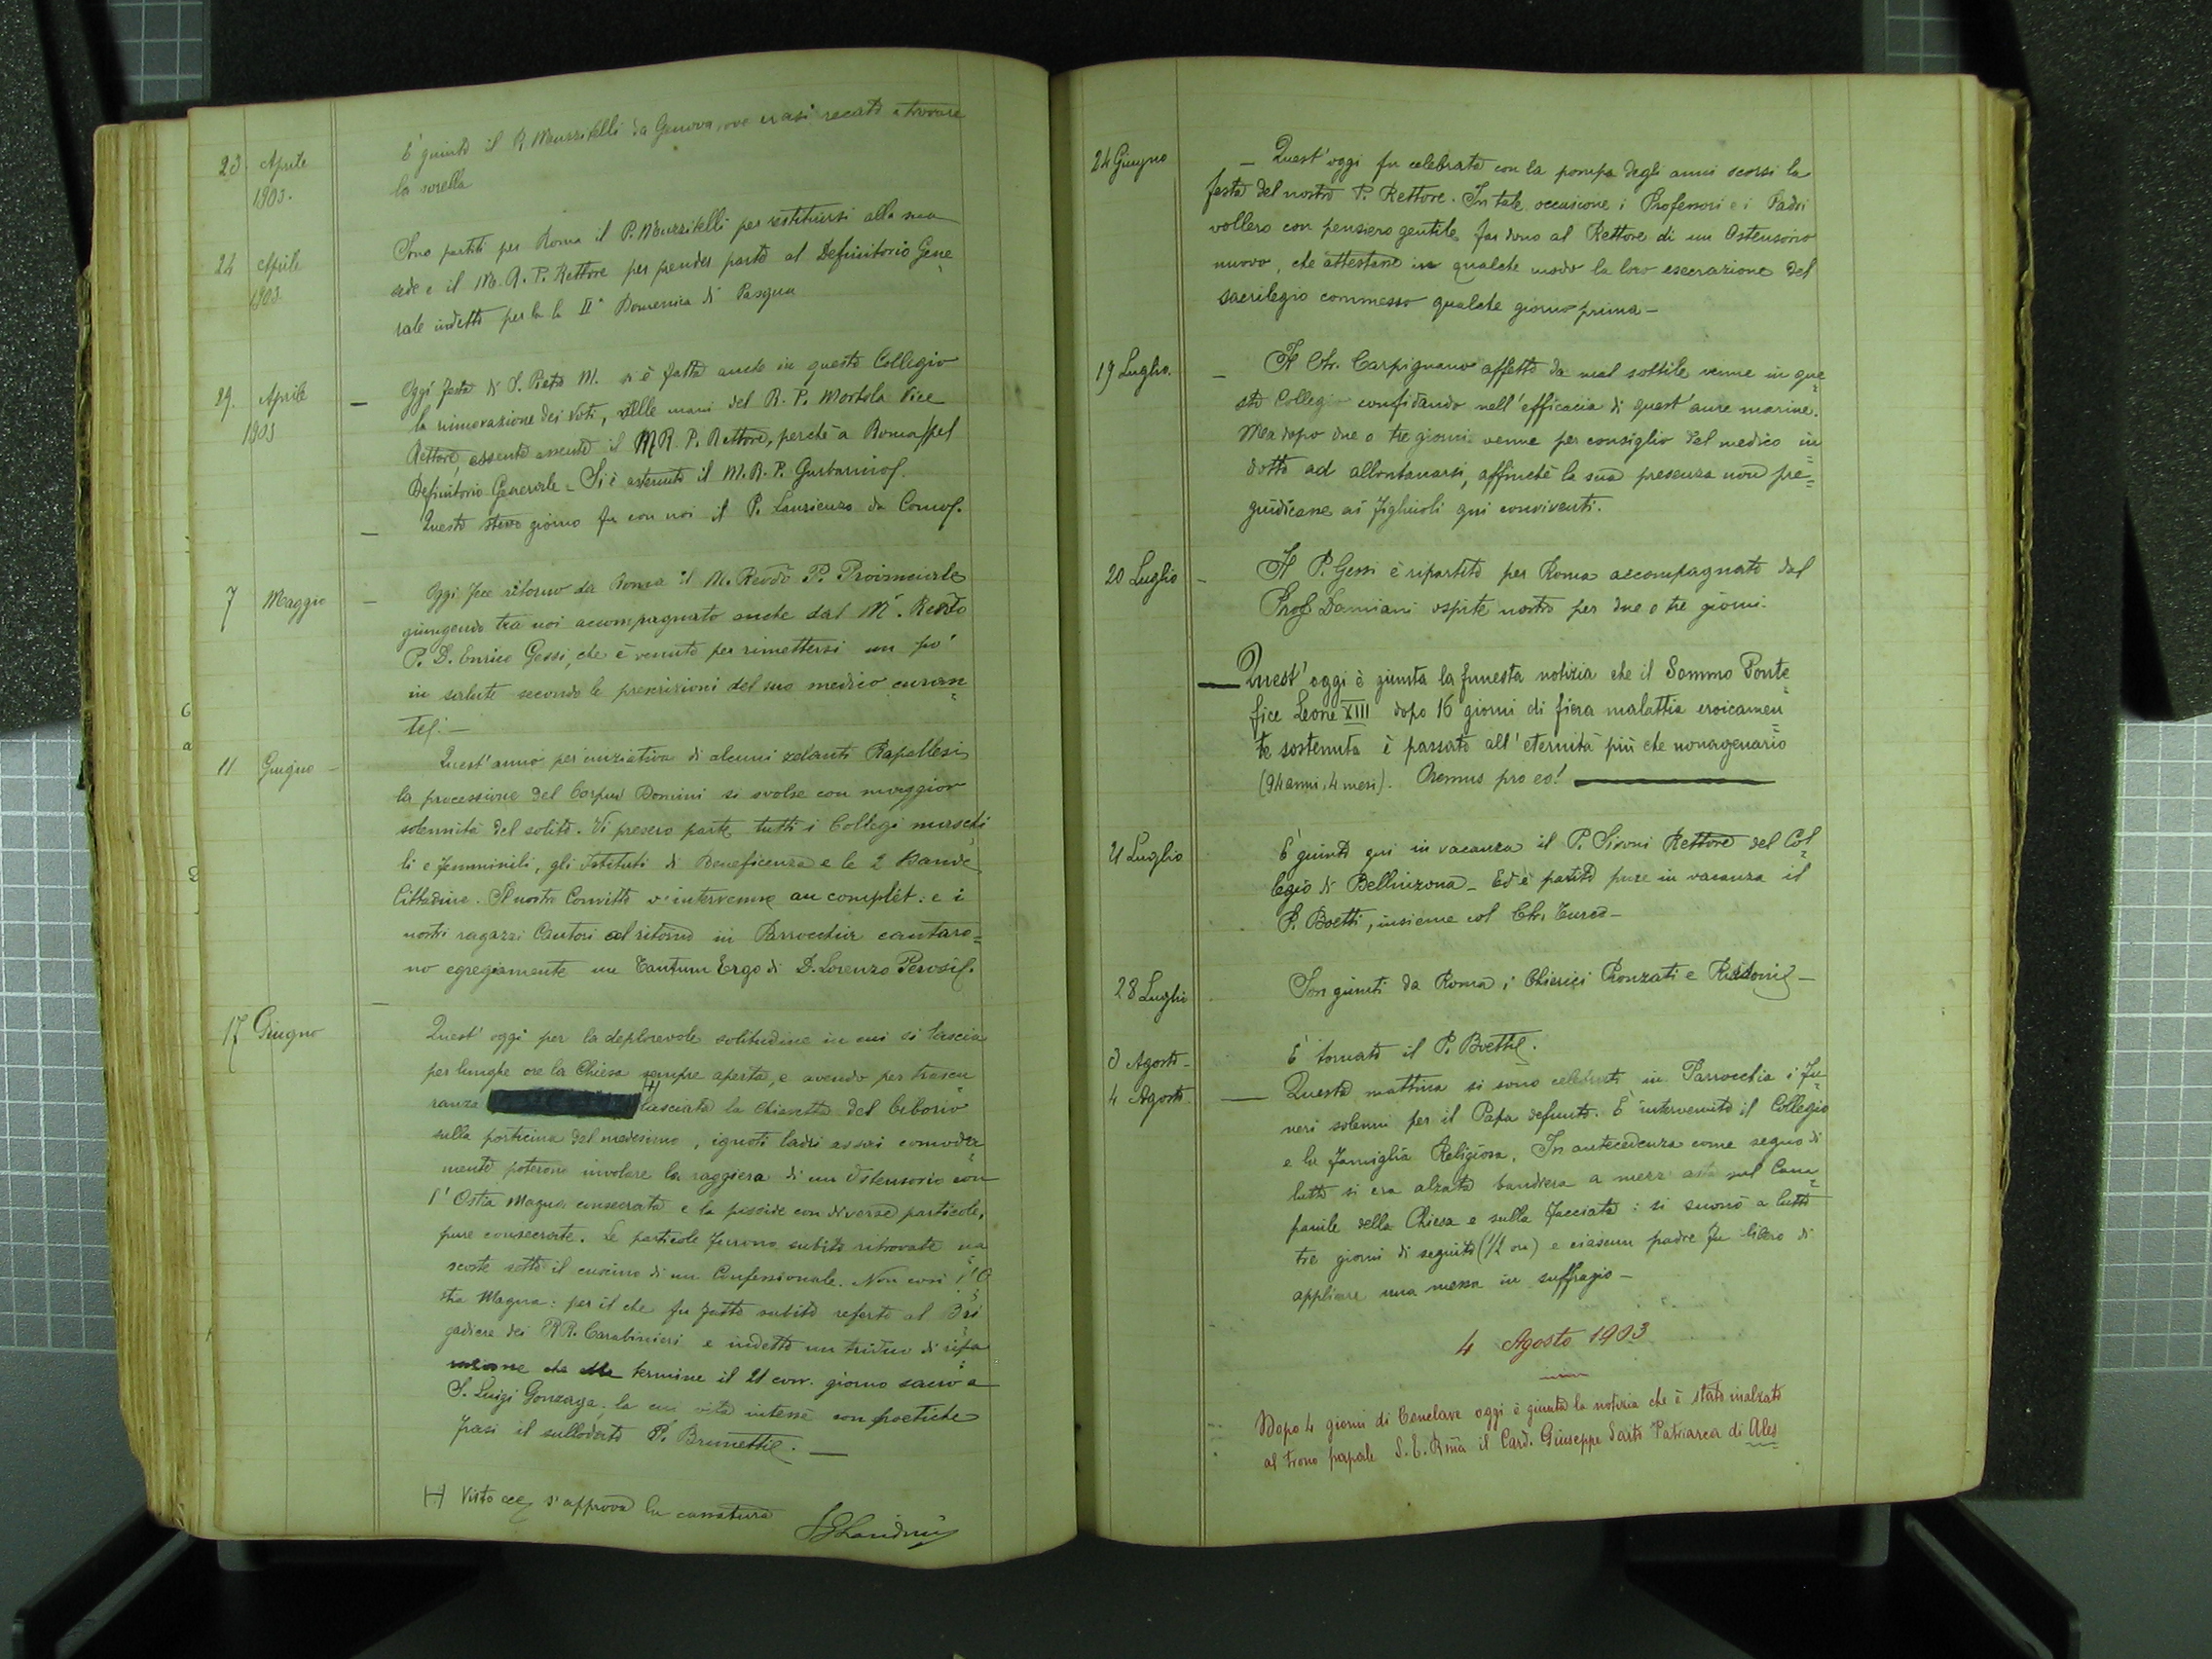 23. Aprile
1903.
È giunto il P. Muzzitelli da Genova, ove erasi recato a trovare
la sorella
24 Aprile
1903
Sono partiti per Roma il P. Muzzitelli per restituirsi alla sua
sede e il M. R. P. Rettore per prender parte al Definitorio Gene
rale indetto per la la IIª Domenica di Pasqua
29. Aprile
1903
— Oggi festa di S. Pietro M. si è fatta anche in questo Collegio
la rinnovazione dei Voti, nelle mani del R. P. Mortola Vice
Rettore, essente assente il MR. P. Rettore, perchè a Roma pel
Definitorio Generale - Si è astenuto il M. R. P. Garbarino.
— Questo stesso giorno fu con noi il P. Laurienzo da Como.
7 Maggio
— Oggi fece ritorno da Roma il M. Revdo P. Provinciale
giungendo tra noi accompagnato anche dal M. Revdo
P. D. Enrico Gessi, che è venuto per rimettersi un pò
in salute secondo le prescrizioni del suo medico curan=
te. —
11 Giugno —
Quest'anno per iniziativa di alcuni zelanti Rapallesi
la processione del Corpus Domini si svolse con maggior
solennità del solito. Vi presero parte tutti i Collegi maschi
li e femminili, gli Istituti di Beneficenza e le 2 Bande
Cittadine. Il nostro Convitto v'intervenne au complèt: e i
nostri ragazzi Cantori al ritorno in Parrocchia cantaro=
no egregiamente un Tantum Ergo di D. Lorenzo Perosi.
17 Giugno
Quest'oggi per la deplorevole solitudine in cui si lascia
per lunghe ore la Chiesa sempre aperta, e avendo per trascu
ranza (+) lasciata la chiavetta del Ciborio
sulla porticina del medesimo, ignoti ladri assai comoda=
mente poterono involare la raggiera di un Ostensorio con
l'Ostia Magna consecrata e la pisside con diverse particole,
pure consecrate. Le particole furono subito ritrovate na
scoste sotto il cuscino di un Confessionale. Non così l'O
stia Magna: per il che fu fatto subito referto al Bri
gadiere dei RR. Carabinieri e indetto un triduo di ripa
razione che ebbe termine il 21 corr. giorno sacro a
S. Luigi Gonzaga, la cui vita intessè con poetiche
frasi il sullodato P. Brunetti. —
(+) Visto ecc, s'approva la cassatura
24 Giugno
— Quest'oggi fu celebrata con la pompa degli anni scorsi la
festa del nostro P. Rettore. In tale occasione i Professori e i Padri
vollero con pensiero gentile far dono al Rettore di un Ostensorio
nuovo, che attestasse in qualche modo la loro esecrazione del
sacrilegio commesso qualche giorno prima —
19 Luglio.
— Il Ch. Carpignano affetto da mal sottile venne in que
sto Collegio confidando nell'efficacia di quest'aure marine.
Ma dopo due o tre giorni venne per consiglio del medico in=
dotto ad allontanarsi, affinchè la sua presenza non pre=
giudicasse ai figliuoli qui conviventi.
20 Luglio
— Il P. Gessi è ripartito per Roma accompagnato dal
Prof. Damiani ospite nostro per due o tre giorni.
— Quest'oggi è giunta la funesta notizia che il Sommo Ponte=
fice Leone XIII dopo 16 giorni di fiera malattia eroicamen=
te sostenuta è passato all'eternità più che nonagenario
(94 anni, 4 mesi). Oremus pro eo! —
21 Luglio
È giunto qui in vacanza il P. Sironi Rettore del Col=
legio di Bellinzona — Ed è partito pure in vacanza il
P. Boetti, insieme col Ch. Turco —
28 Luglio
Son giunti da Roma i Chierici Ronzati e —
3 Agosto —
È tornato il P. Boetti.
4 Agosto
— Questa mattina si sono celebrati in Parrocchia i Fu=
neri solenni per il Papa defunto. È intervenuto il Collegio
e la famiglia Religiosa. In antecedenza come segno di
lutto si era alzata bandiera a mezz'asta sul Cam=
panile della Chiesa e sulla Facciata: si suonò a lutto
tre giorni di seguito (1/2 ora) e ciascun padre fu libero di
applicare una messa in suffragio —
4 Agosto 1903
Dopo 4 giorni di Conclave oggi è giunta la notizia che è stato inalzato
al trono papale S. E. Rma il Card. Giuseppe Sarto Patriarca di Ales